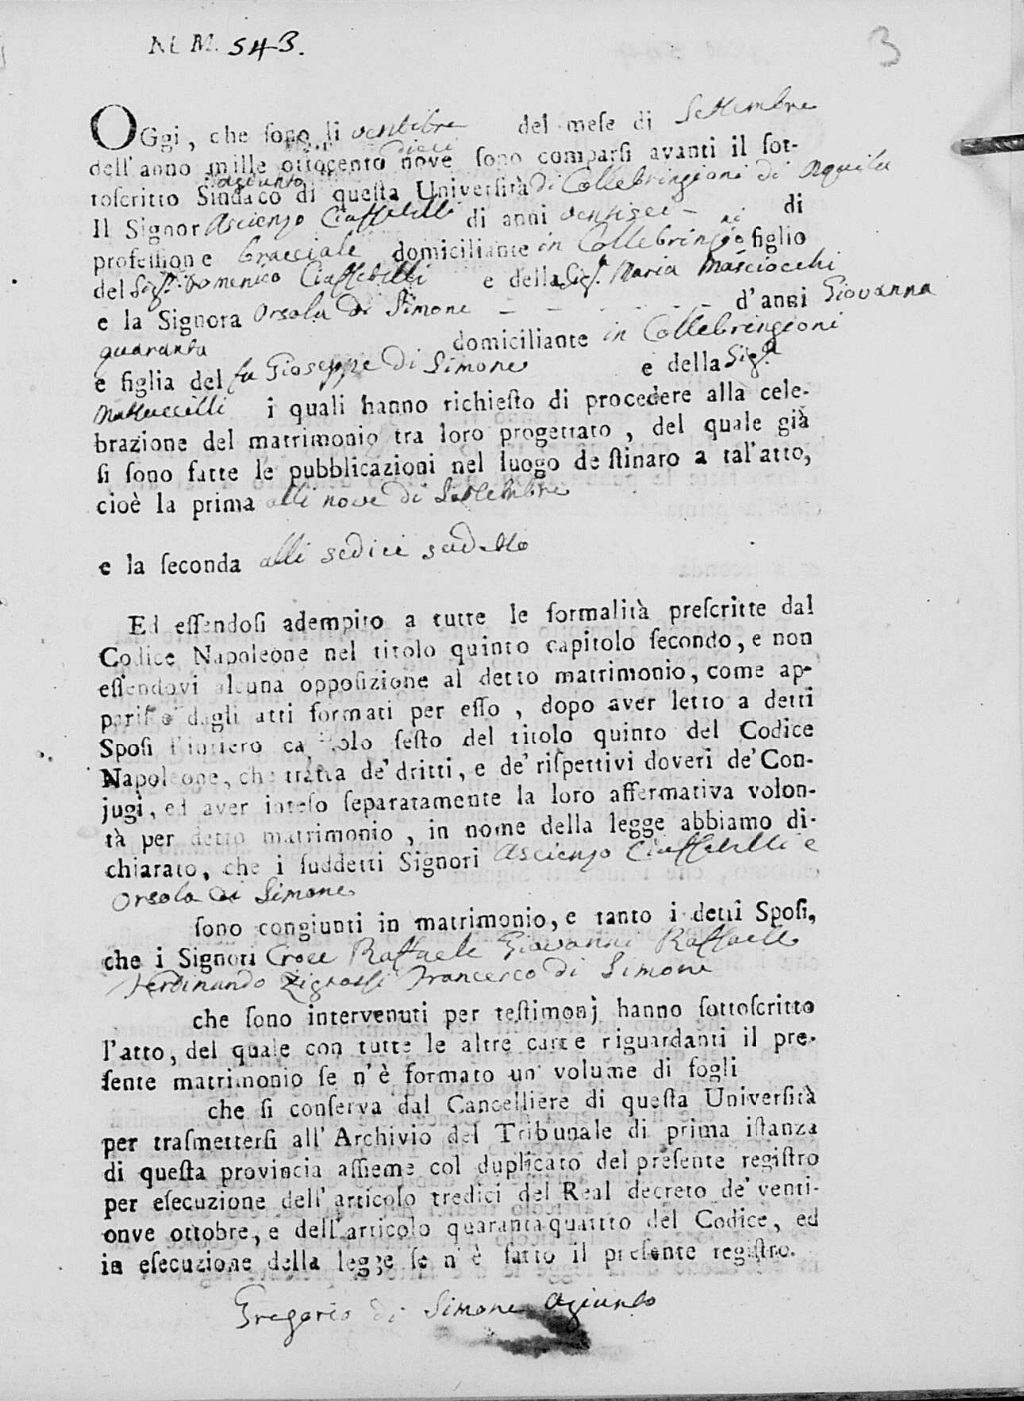 N. M. 543.
3
OGgi, che sono li ventitre del mese di Settembre
dell' anno mille ottocento dieci nove sono comparsi avanti il sot-
toscritto Sindaco agiunto di questa Università di Collebringioni di Aquila
Il Signor Ascienzo Ciaffetelli di anni ventisei - di
professione bracciale domiciliante in Collebringioni figlio
del Sig.r Domenico Ciaffetelli e della Sig.ª Maria Masciocchi
e la Signora Orsola Di Simone - - - - - - d' anni
quaranta domiciliante in Collebringioni
e figlia del fu Gioseppe Di Simone e della Sig.ª Giovanna
Mattuccilli i quali hanno richiesto di procedere alla cele-
brazione del matrimonio tra loro progettato, del quale già
si sono fatte le pubblicazioni nel luogo destinaro a tal' atto,
cioè la prima alli nove di Settembre
e la seconda alli sedici sudetto
Ed essendosi adempito a tutte le formalità prescritte dal
Codice Napoleone nel titolo quinto capitolo secondo, e non
essendovi alcuna opposizione al detto matrimonio, come ap-
parisce dagli atti formati per esso, dopo aver letto a detti
Sposi l'intiero capitolo sesto del titolo quinto del Codice
Napoleone, che tratta de' dritti, e de' rispettivi doveri de' Con-
jugi, ed aver inteso separatamente la loro affermativa volon-
tà per detto matrimonio, in nome della legge abbiamo di-
chiarato, che i suddetti Signori Ascienzo Ciaffetelli e
Orsola Di Simone
sono congiunti in matrimonio, e tanto i detti Sposi,
che i Signori Croce Raffaele Giovanni Raffaele
Ferdinando Zigrossi Francesco Di Simone
che sono intervenuti per testimonj hanno sottoscritto
l'atto, del quale con tutte le altre carte riguardanti il pre-
sente matrimonio se n' è formato un volume di fogli
che si conserva dal Cancelliere di questa Università
per trasmettersi all' Archivio del Tribunale di prima istanza
di questa provincia assieme col duplicato del presente registro
per esecuzione dell' articolo tredici del Real decreto de' venti-
onve ottobre, e dell' articolo quarantaquattro del Codice, ed
in esecuzione della legge se n' è fatto il presente registro.
Gregorio di Simone Agiunto